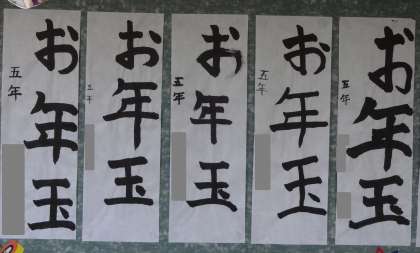 お年玉
五年
お年玉
五年
お年玉
五年
お年玉
五年
お年玉
五年